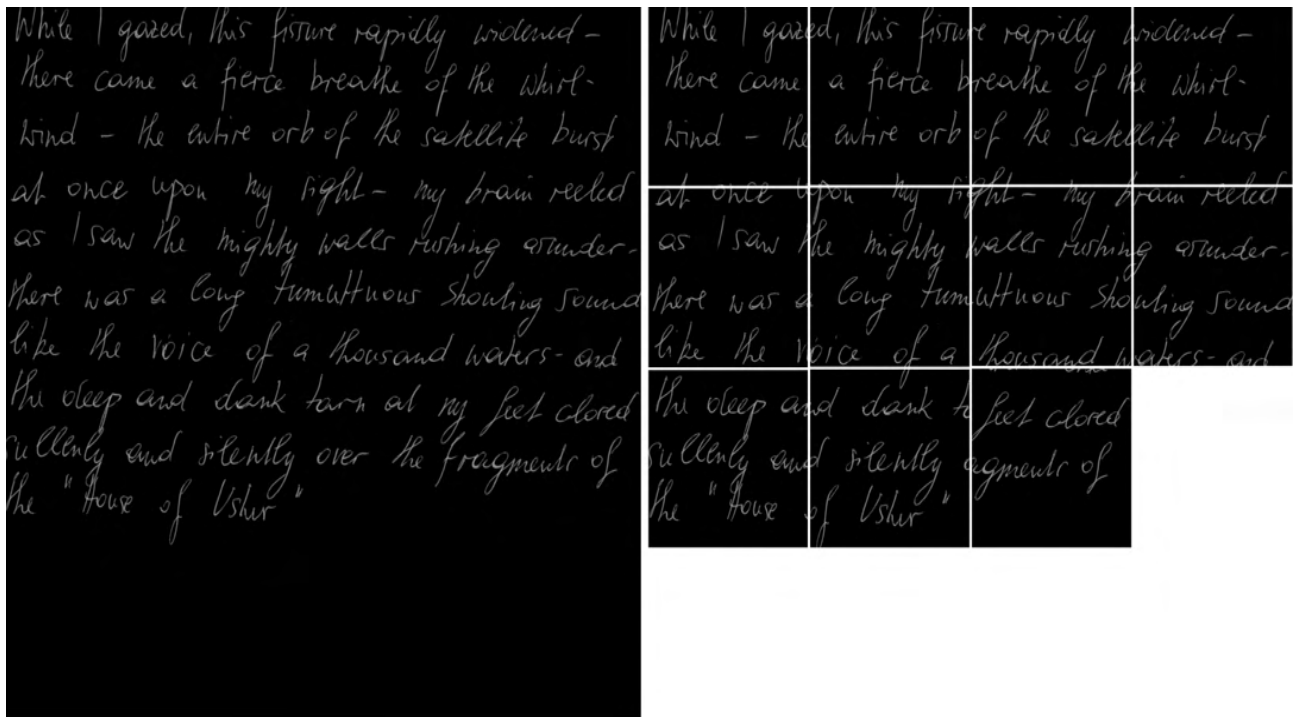 While I gazed, this fissure rapidly widened –
there came a fierce breathe of the whirl-
wind – the entire orb of the satellite burst
at once upon my sight – my brain reeled
as I saw the mighty walls rushing asunder-
there was a long tumultuous shouting sound
like the voice of a thousand waters- and
the deep and dank tarn at my feet closed
sullenly and silently over the fragments of
the "House of Usher"
While I gazed, this fissure rapidly widened –
there came a fierce breathe of the whirl-
wind – the entire orb of the satellite burst
at once upon my sight – my brain reeled
as I saw the mighty walls rushing asunder-
there was a long tumultuous shouting sound
like the voice of a thousand waters- and
the deep and dank t feet closed
sullenly and silently agments of
the "House of Usher"